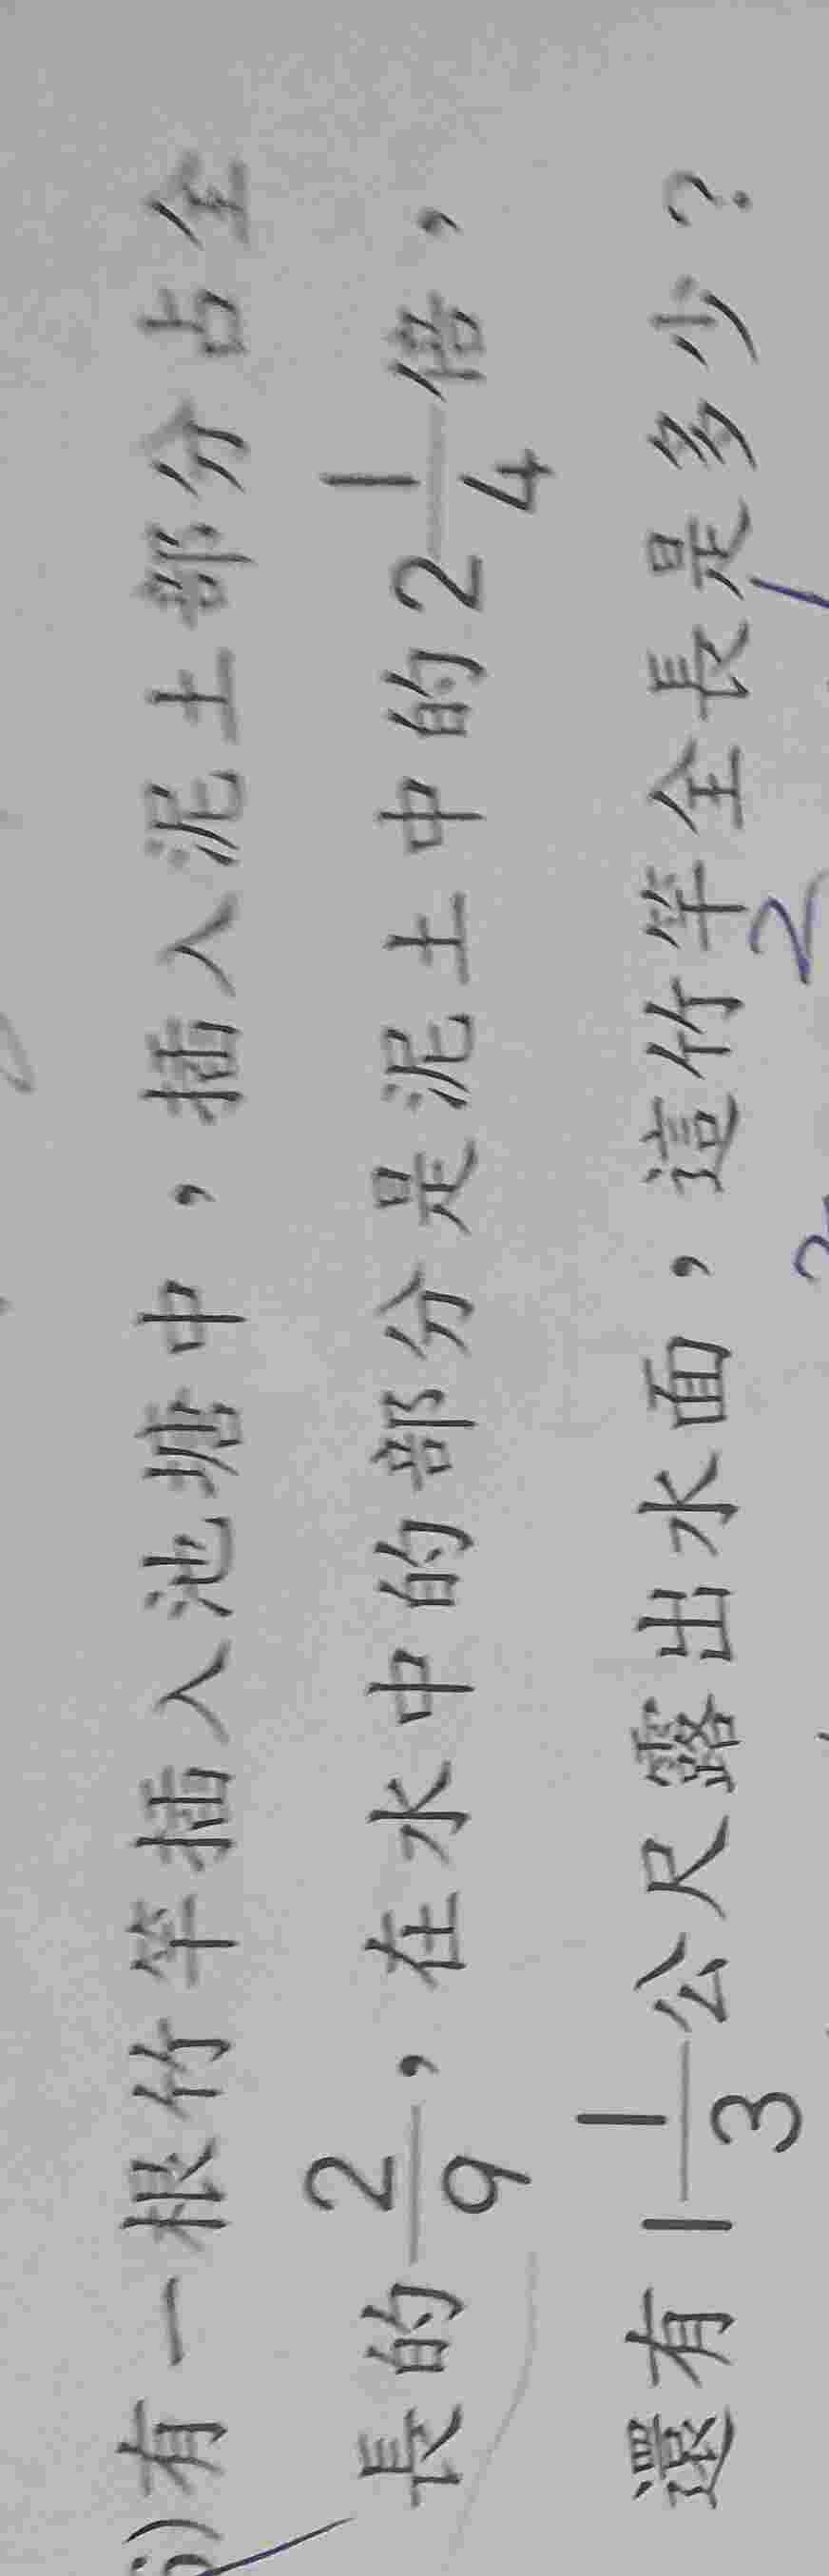 有一根竹竿插入池塘中，插入泥土部分占全
長的2/9，在水中的部分是泥土中的2 1/4倍，
還有1 1/3公尺露出水面，這竹竿全長是多少？